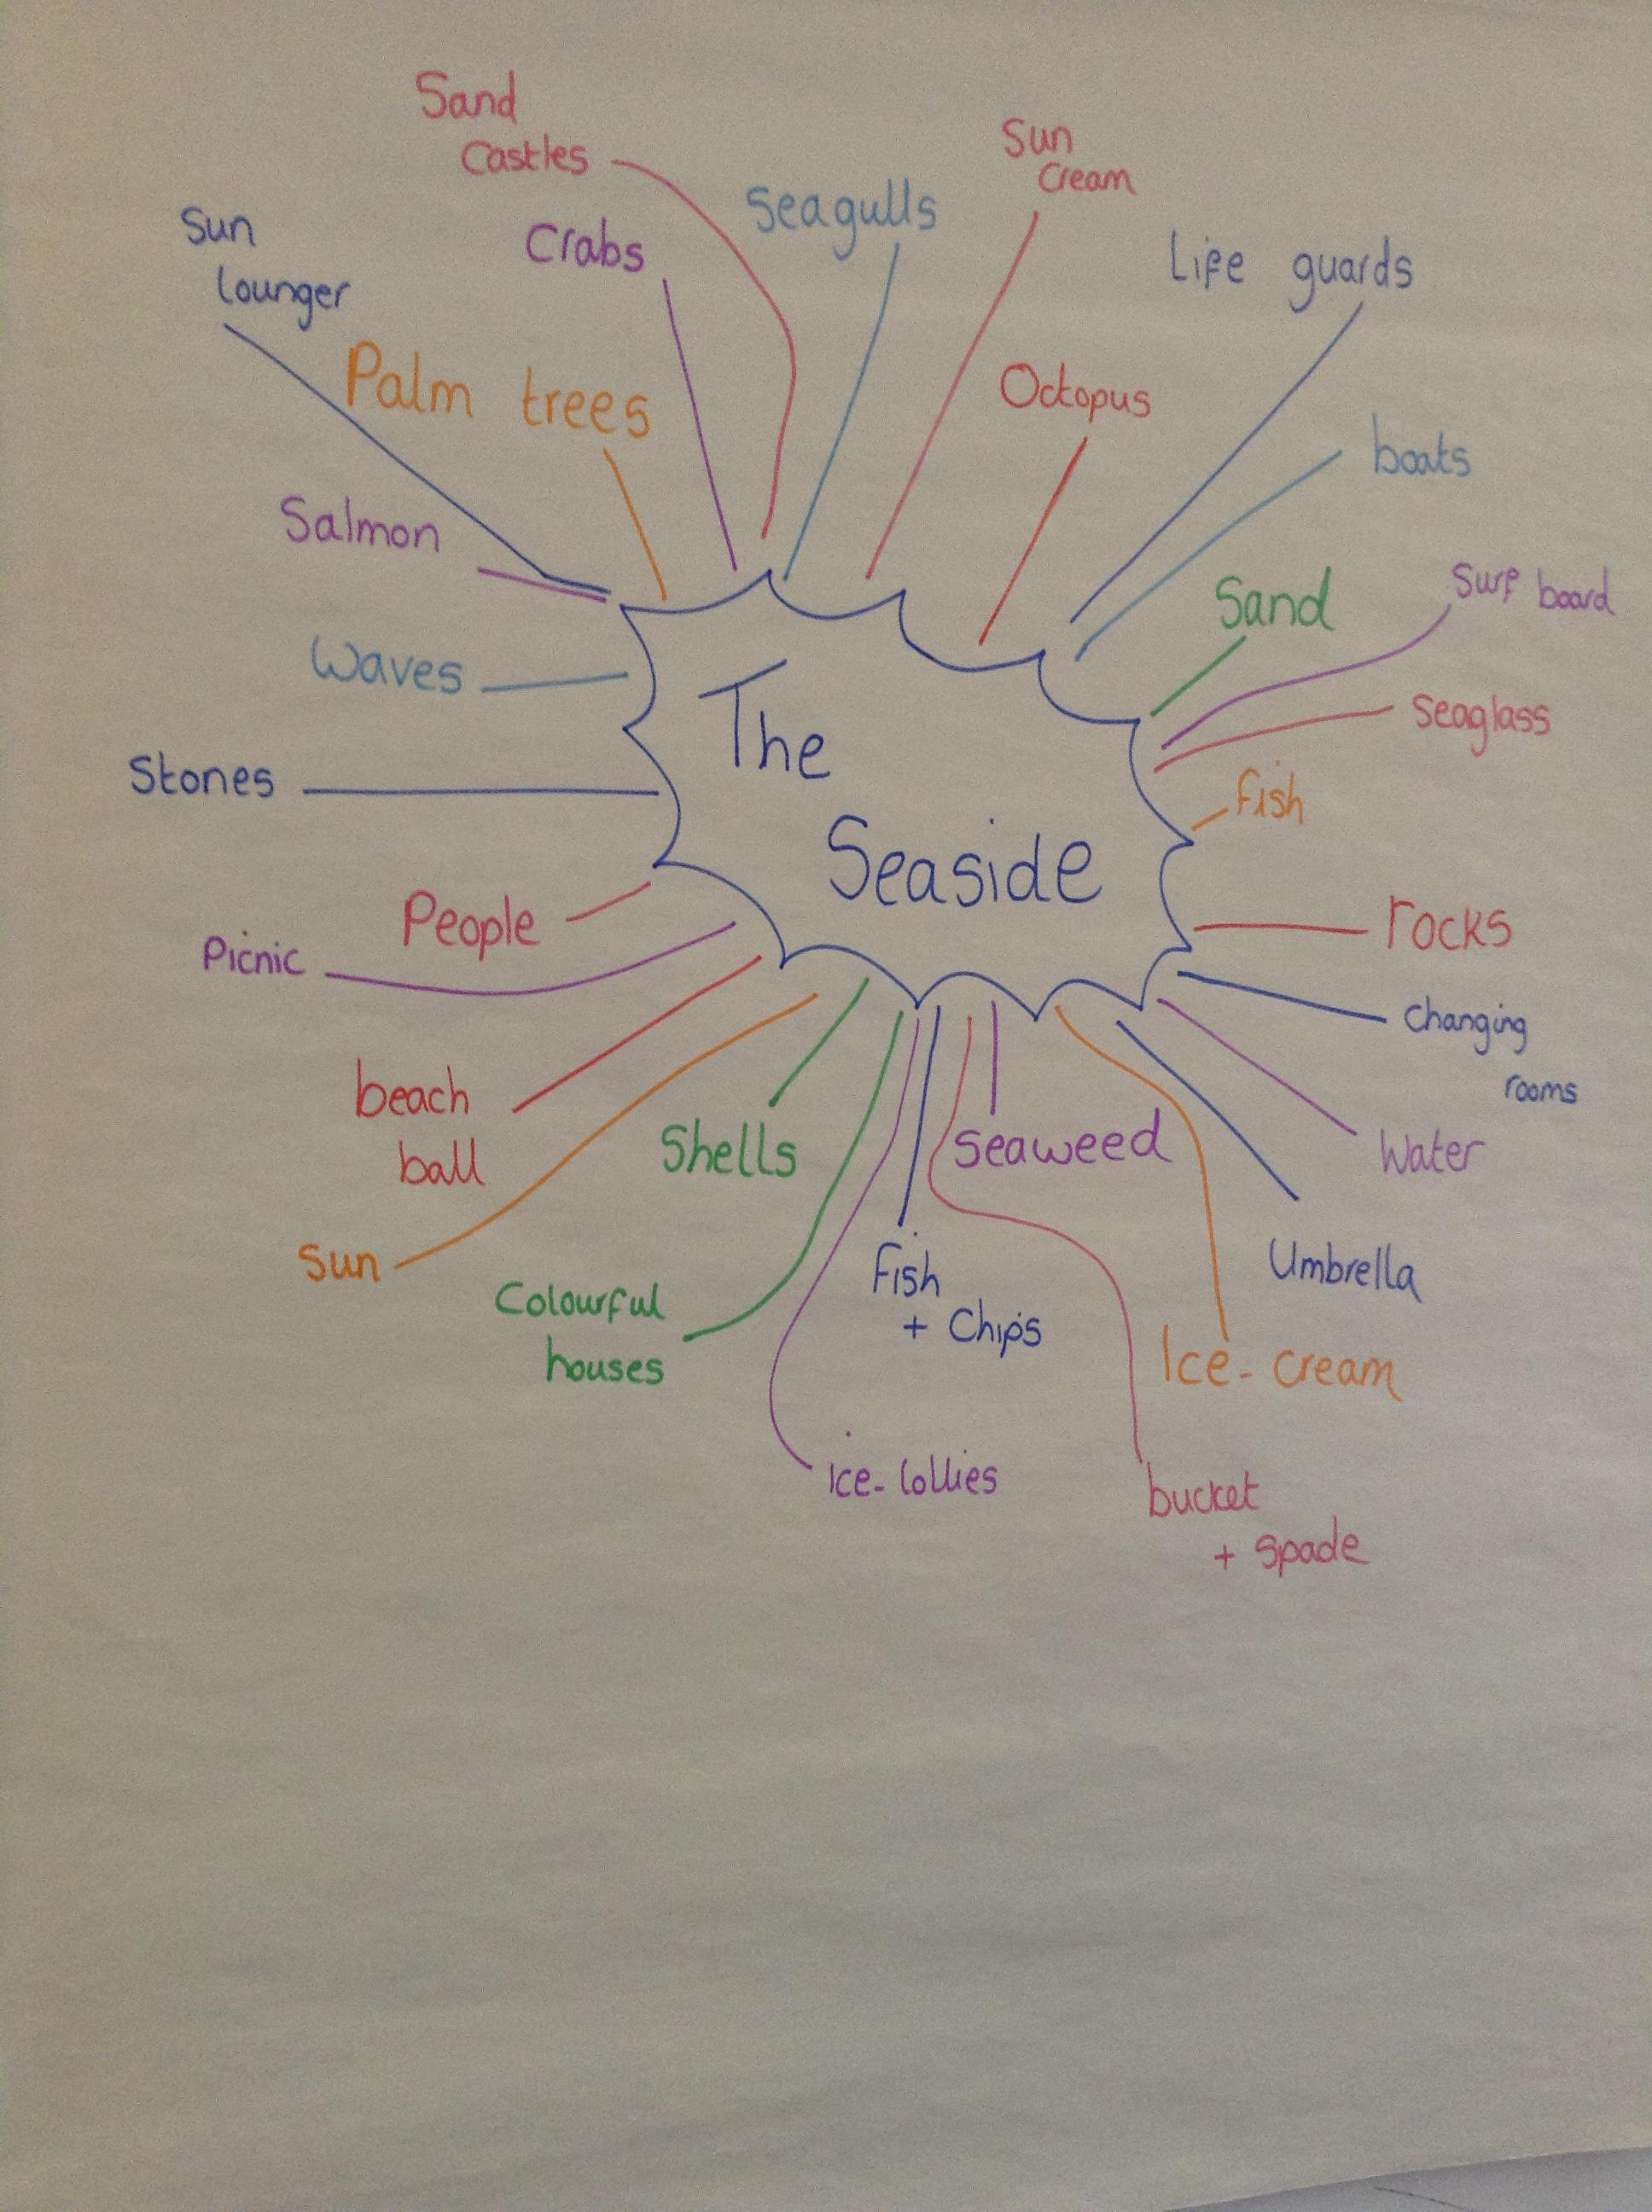 Sand
Castles
Sun
Cream
Seagulls
Sun
lounger
Crabs
Life guards
Palm trees
Octopus
boats
Salmon
Sand
Surf board
Waves
Seaglass
The
Seaside
Stones
fish
People
rocks
Picnic
Changing
rooms
beach
ball
Shells
Seaweed
Water
Sun
Colourful
houses
Fish
+ Chips
Umbrella
Ice-cream
ice-lollies
bucket
+ Spade